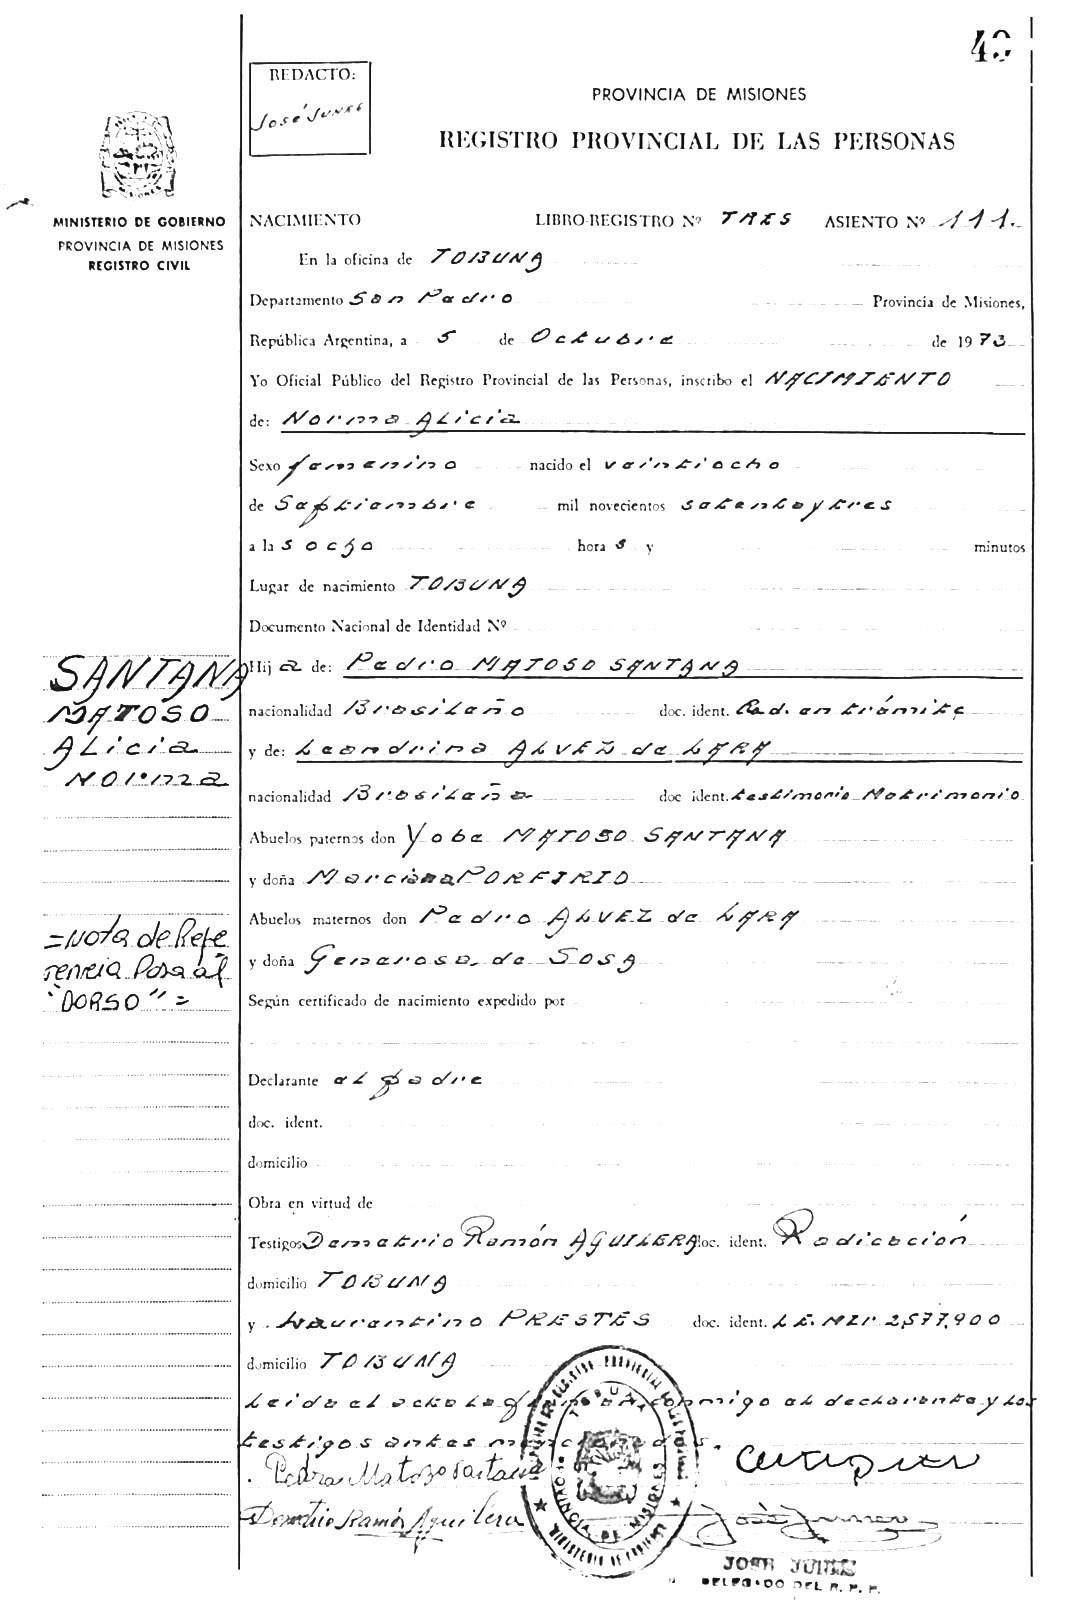 49
REDACTO:
José Junes
PROVINCIA DE MISIONES
REGISTRO PROVINCIAL DE LAS PERSONAS
MINISTERIO DE GOBIERNO
PROVINCIA DE MISIONES
REGISTRO CIVIL
NACIMIENTO LIBRO-REGISTRO Nº TRES ASIENTO Nº 111.
En la oficina de TOBUNA
Departamento San Pedro Provincia de Misiones,
República Argentina, a 5 de Octubre de 1973
Yo Oficial Público del Registro Provincial de las Personas, inscribo el NACIMIENTO
de: Norma ALicia
Sexo femenino nacido el veintiocho
de Septiembre mil novecientos setentaytres
a las ocho horas y minutos
Lugar de nacimiento TOBUNA
Documento Nacional de Identidad Nº
Hija de: Pedro MATOSO SANTANA
nacionalidad Brasileño doc. ident. Rad. en trámite
y de: Leandrina ALVEZ de LARA
nacionalidad Brasileña doc ident. testimonio Matrimonio
Abuelos paternos don Yobe MATOSO SANTANA
y doña Marciana PORFIRIO
Abuelos maternos don Pedro ALVEZ de LARA
y doña Generosa de SOSA
Según certificado de nacimiento expedido por
SANTANA
MATOSO
ALicia
Norma
=Nota de Refe
rencia Pasa al
"DORSO"=
Declarante el padre
doc. ident.
domicilio
Obra en virtud de
Testigos Demetrio Ramón AGUILERA doc. ident. Radicación
domicilio TOBUNA
y Laurentino PRESTES doc. ident. L.E. MZI 2,577,900
domicilio TOBUNA
Leida el acta La firman conmigo el declarante y los
testigos antes mencionados.
Pedro Matozo Santana
Demetrio Ramón Aguilera
José Junes
TOBUNA
PROVINCIA DE MISIONES
MINISTERIO DE GOBIERNO
JOSE JUNES
DELEGADO DEL R. P. P.